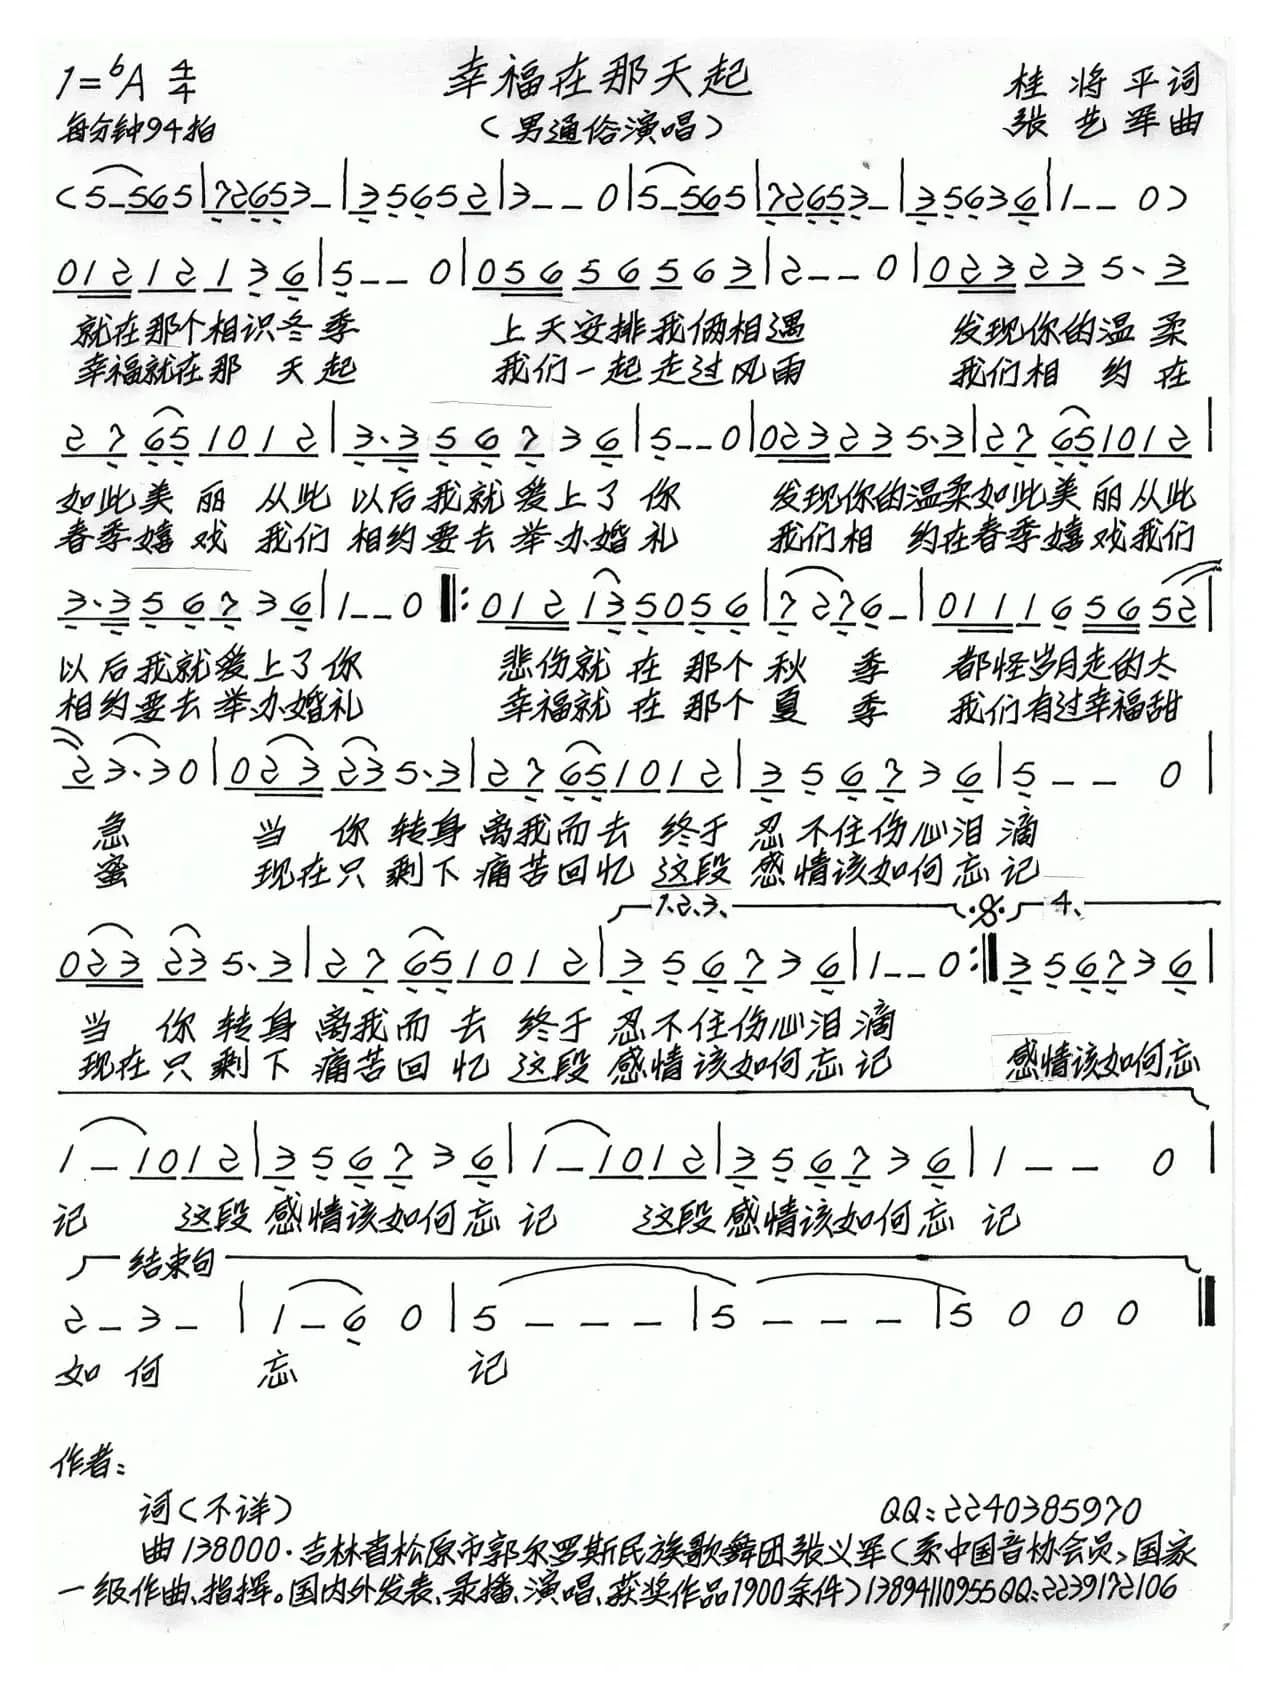 1=ᵇA 4/4 幸福在那天起 桂将平词
每分钟94拍 （男通俗演唱） 张艺军曲
(5-565|72653-|35652|3--0|5-565|72653-|35636|1--0)
01212136|5--0|05656563|2--0|023235·3
就在那个相识冬季 上天安排我俩相遇 发现你的温柔
幸福就在那天起 我们一起走过风雨 我们相约在
27651012|3·356736|5--0|023235·3|27651012|
如此美丽 从此以后我就爱上了你 发现你的温柔如此美丽从此
春季嬉戏 我们相约要去举办婚礼 我们相约在春季嬉戏我们
3·356736|1--0‖:012135056|7276-|011165652|
以后我就爱上了你 悲伤就在那个秋季 都怪岁月走的太
相约要去举办婚礼 幸福就在那个夏季 我们有过幸福甜
23·30|023235·3|27651012|356736|5--0|
急 当你转身离我而去 终于忍不住伤心泪滴
蜜 现在只剩下痛苦回忆 这段感情该如何忘记
1.2.3、 4、
023235·3|27651012|356736|1--0:‖356736|
当你转身离我而去 终于忍不住伤心泪滴
现在只剩下痛苦回忆 这段感情该如何忘记 感情该如何忘
1-1012|356736|1-1012|356736|1--0|
记 这段感情该如何忘记 这段感情该如何忘记
结束句
2-3-|1-60|5---|5---|5000‖
如何忘记
作者：
词（不详） QQ：2240385970
曲138000·吉林省松原市郭尔罗斯民族歌舞团张义军（系中国音协会员，国家
一级作曲、指挥。国内外发表、录播、演唱、获奖作品1900余件）13894110955QQ：2239172106